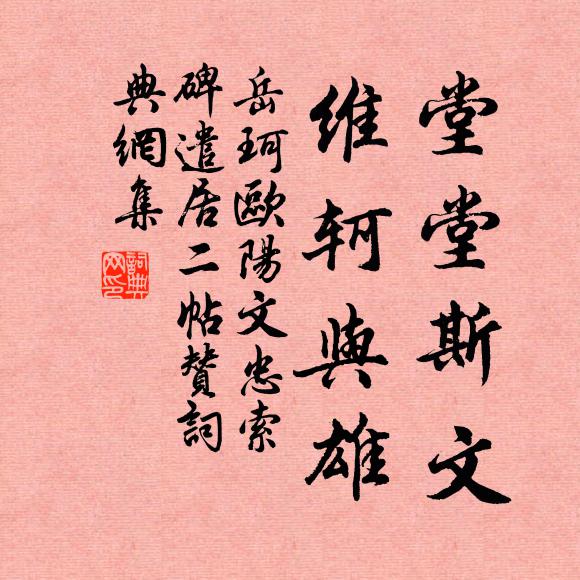 堂堂斯文
維軻與雄
岳珂歐陽文忠索
碑遣居二帖贊詞
典網集
詞典
网印